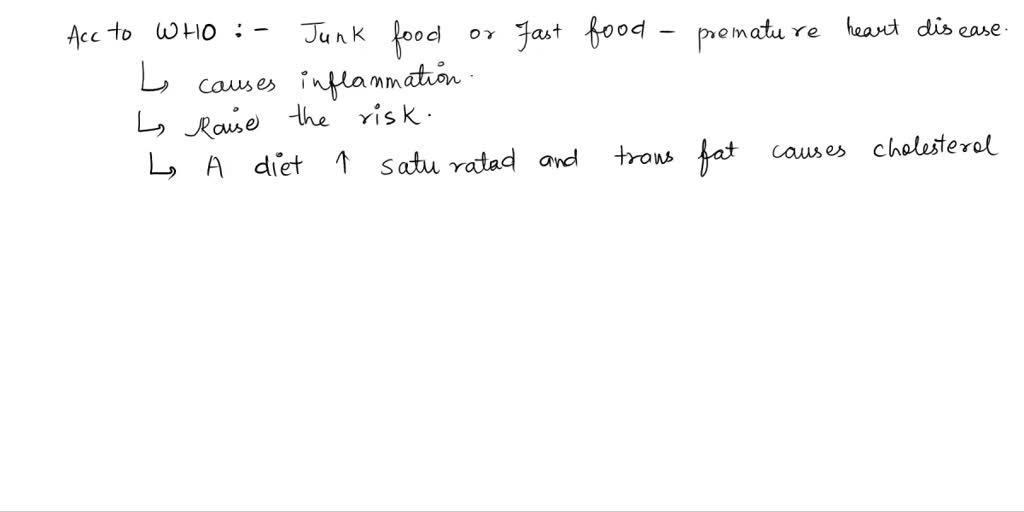 Acc to WHO :- Junk food or Fast food - premature heart disease.
↳ causes inflammation.
↳ Raise the risk.
↳ A diet ↑ saturated and trans fat causes cholesterol